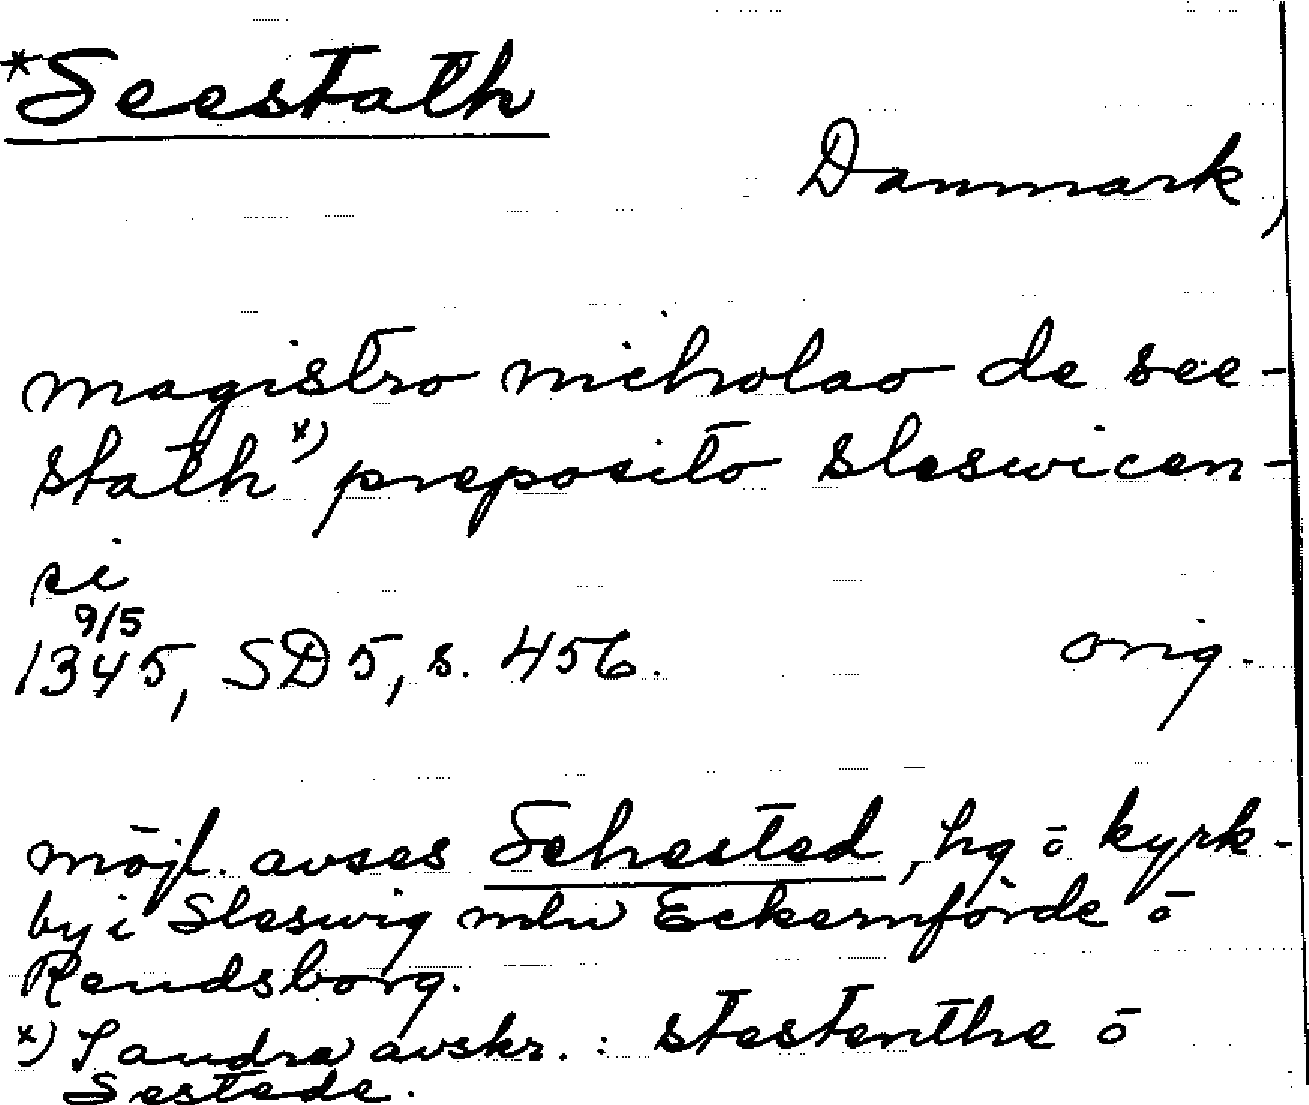 *Seestath
Danmark,
magistro nicholao de see-
stath x) preposito sleswicen-
si
9/5
1345, SD 5, s. 456. orig.
möjl. avses Sehested, hg o kyrk-
by i Sleswig mln Eckernförde o
Rendsborg.
x) I andra avskr.: stestenthe o
Sestede.